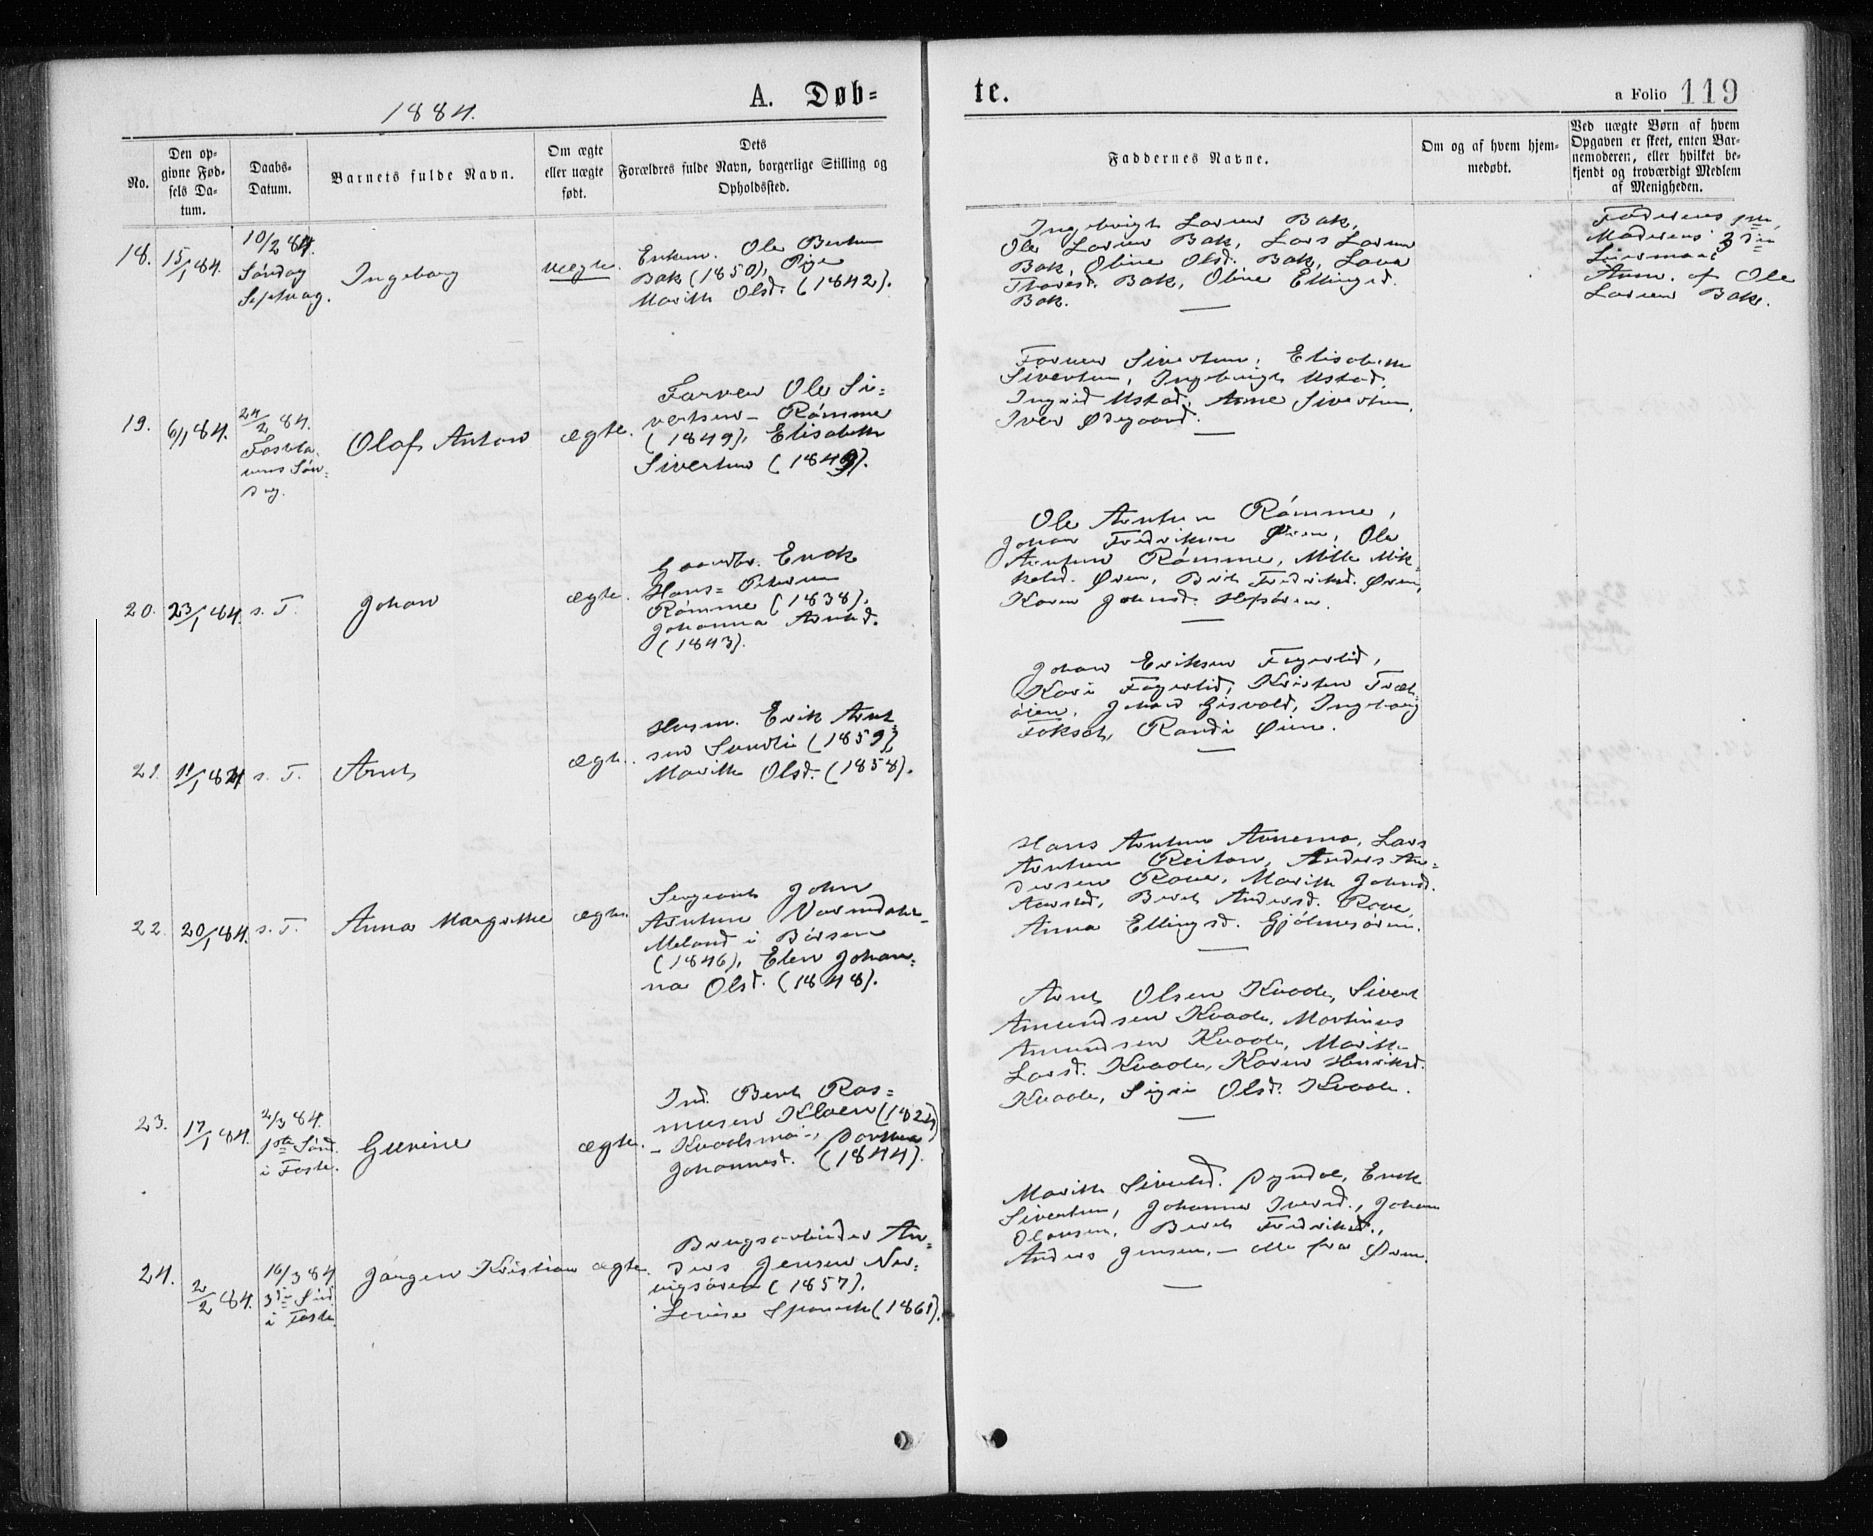 1884.
A. Døb=
te.
a Folio 119
No.
Den op-
givne Fød-
sels Da-
tum.
Daabs-
Datum.
Barnets fulde Navn.
Om ægte
eller uægte
født.
Dets
Forældres fulde Navn, borgerlige Stilling og
Opholdssted.
Faddernes Navne.
Om og af hvem hjem-
medøbt.
Ved uægte Børn af hvem
Opgaven er skeet, enten Bar-
nemoderen, eller hvilket be-
kjendt og troværdigt Medlem
af Menigheden.
18.
15/1 84.
10/2 84.
Søndag
Septuag.
Ingeborg
uægte.
Enkem. Ole Bentsen
Bak (1850), Pige
Marith Olsd. (1842).
Ingebrigt Larsen Bak,
Ole Larsen Bak, Lars Larsen
Bak, Oline Olsd. Bak,
Bak, Oline Ellingsd.
Bak.
Faderens 1ste,
Moderens 3die
Leiermaal
Anm. af Ole
Larsen Bak.
19.
6/1 84.
24/2 84.
Fastela-
vens Søn-
dag.
Olaf Anton
ægte.
Farver Ole Si-
vertsen - Rømme
(1849), Elisabeth
Sivertsen (1849).
Farver Sivertsen, Elisabeth
Sivertsen, Ingebrigt Ustad,
Ingrid Ustad, Arne Sivertsen,
Iver Ødegaard.
20.
23/1 84.
s. T.
Johan
ægte.
Gaardbr. Erik
Hans=Petersen
Rømme (1838),
Johanna Arntsd.
(1843).
Ole Arntsen Rømme,
Johan Fredriksen Øren, Ole
Arntsen Rømme, Mille Mik-
kelsd. Øren, Berit Fredriksd. Øren,
Karen Johnsd.
21.
11/1 84
s. T.
Arnt
ægte.
Husm. Erik Arnt-
sen Sundli (1859)
Marith Olsd. (1858).
Johan Eriksen Fagerlid,
Kari Fagerlid, Kristen Træt-
øien, Johan Gisvold, Ingeborg
Foksæt, Randi Øien.
22.
20/1 84.
s. T.
Anna Margrethe
ægte.
Sergeant John
Arntsen Varmdahl
Meland i Børsen
(1846), Elen Johan-
na Olsd. (1848).
Hans Arntsen Aunemo, Lars
Arntsen Reitan, Anders An-
dersen Rove, Marith Johnsd.
Aarstad, Berit Andersd. Rove,
Anna Ellingsd. Gjølmesøren.
23.
17/1 84.
2/3 84.
1ste Sønd.
i Faste.
Gurine
ægte.
Ind. Bent Ras-
musen Kloen
- Kvaalsmo -, Dorthea
Johannesd. (1844).
Arnt Olsen Kvaale, Sivert
Amundsen Kvaale, Martinus
Amundsen Kvaale, Marith
Larsd. Kvaale, Karen Henriksd.
Kvaale, Sigri Olsd. Kvaale.
24.
2/2 84.
16/3 84
3die Sønd.
i Faste.
Jørgen Kristian
ægte.
Brugsarbeider An-
ders Jensen Ner-
vigsøren (1857).
Lovise (1861).
Marith Sivertsd. Dyrdal, Erik
Sivertsen, Johannes Iversd., Johan
Olausen, Berit Fredriksd.,
Anders Jensen, - alle fra Øren.